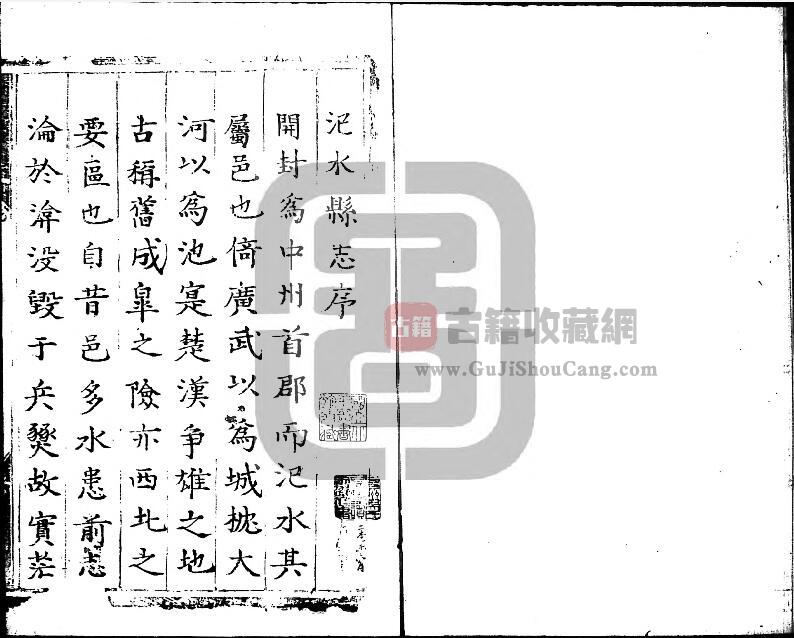 汜水縣志序
開封為中州首郡而汜水其
屬邑也倚廣武以為城挹大
河以為池寔楚漢爭雄之地
古稱舊成臯之險亦西北之
要區也自昔邑多水患前志
淪於渰没毀于兵燹故實茫
古籍
古籍收藏網
www.GuJiShouCang.com